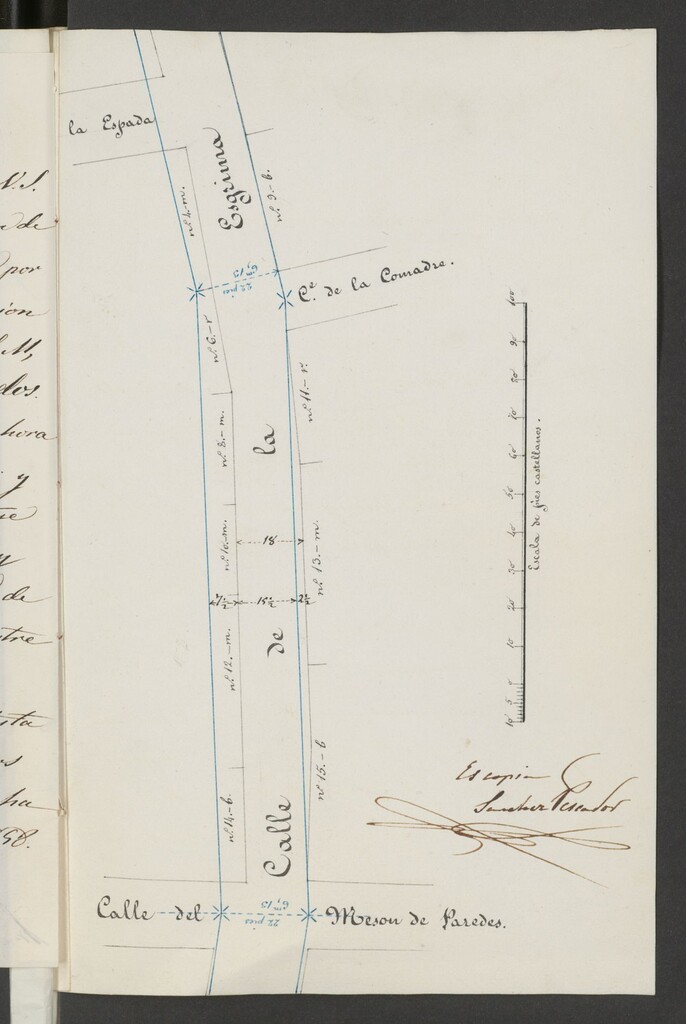 V. I.
de
por
ion
M,
dos.
hora
y
de
tre
ta
s
ha
58.
la Espada
Calle de la Esgrima
C.e de la Comadre.
nº 4.-m.
nº 9.-b.
22 pies
6,m 13
nº 6.-r
nº 11.-r.
nº 8.-m.
nº 10.-m.
18
nº 13.-m.
7½ 15½ 2½
nº 12.-m.
nº 15.-b
nº 14.-b.
Calle del Meson de Paredes.
22 pies
6,m 13
100
90
80
70
60
50
40
30
20
10
0
5
10
Escala de pies castellanos.
Es copia
Sanchez Pescador